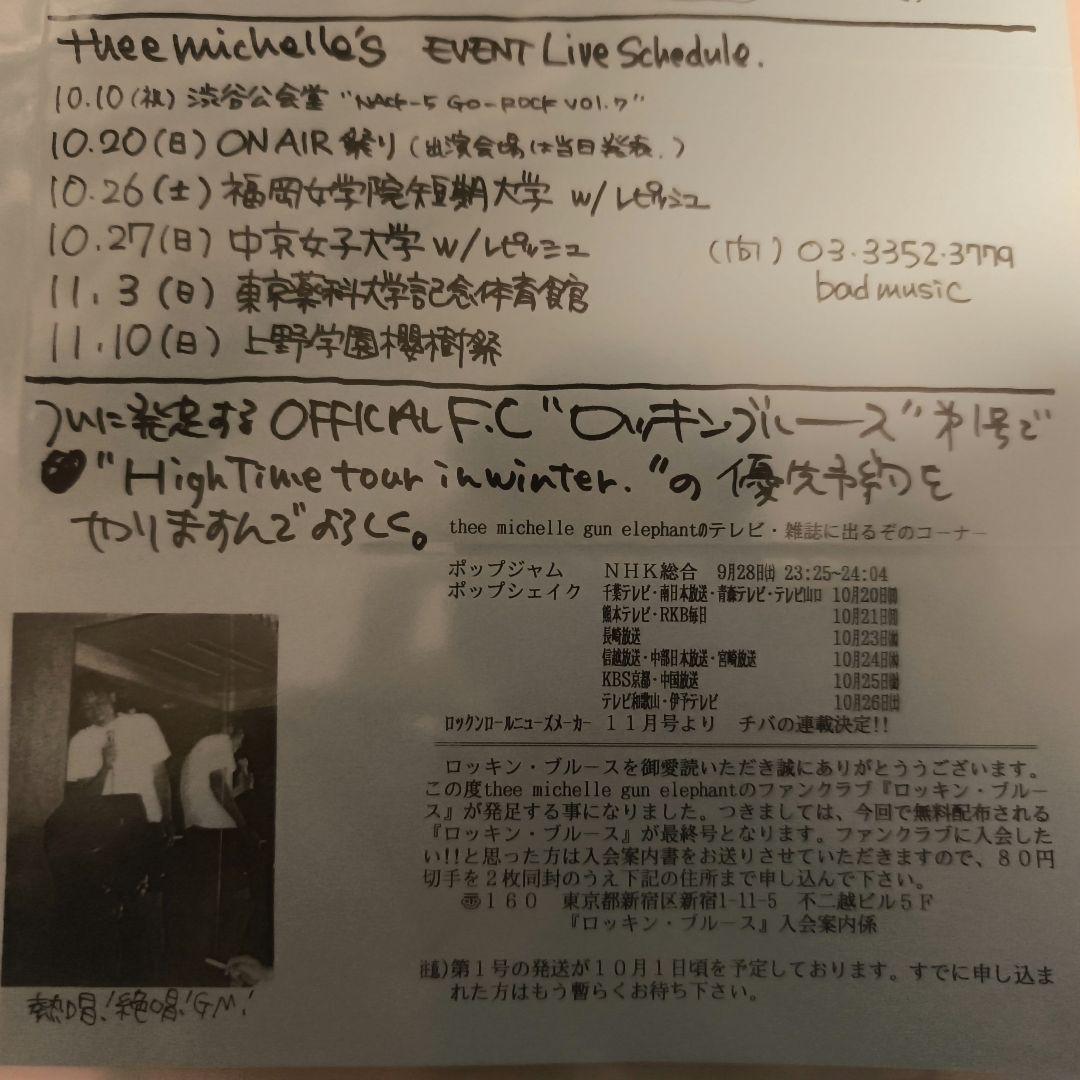 thee michelle's EVENT Live Schedule.
10.10(祝) 渋谷公会堂 "NACK-5 GO-ROCK VOL.7"
10.20(日) ON AIR 祭り (出演会場は当日発表.)
10.26(土) 福岡女学院短期大学 w/レピッシュ
10.27(日) 中京女子大学 w/レピッシュ
(問) 03.3352.3779
bad music
11.3(日) 東京薬科大学記念体育館
11.10(日) 上野学園櫻樹祭
ついに発足する OFFICIAL F.C "ロッキンブルース" 第1号で
"High Time tour in winter." の優先予約を
やりますんでよろしく。
thee michelle gun elephantのテレビ・雑誌に出るぞのコーナー
ポップジャム NHK総合 9月28日(土) 23:25~24:04
ポップシェイク 千葉テレビ・南日本放送・青森テレビ・テレビ山口 10月20日(日)
熊本テレビ・RKB毎日 10月21日(月)
長崎放送 10月23日(水)
信越放送・中部日本放送・宮崎放送 10月24日(木)
KBS京都・中国放送 10月25日(金)
テレビ和歌山・伊予テレビ 10月26日(土)
ロックンロールニューズメーカー 11月号より チバの連載決定!!
ロッキン・ブルースを御愛読いただき誠にありがとううございます。
この度thee michelle gun elephantのファンクラブ『ロッキン・ブルー
ス』が発足する事になりました。つきましては、今回で無料配布される
『ロッキン・ブルース』が最終号となります。ファンクラブに入会した
い!!と思った方は入会案内書をお送りさせていただきますので、80円
切手を2枚同封のうえ下記の住所まで申し込んで下さい。
〒160 東京都新宿区新宿1-11-5 不二越ビル5F
『ロッキン・ブルース』入会案内係
注意)第1号の発送が10月1日頃を予定しております。すでに申し込ま
れた方はもう暫らくお待ち下さい。
熱唱!絶唱!GM!